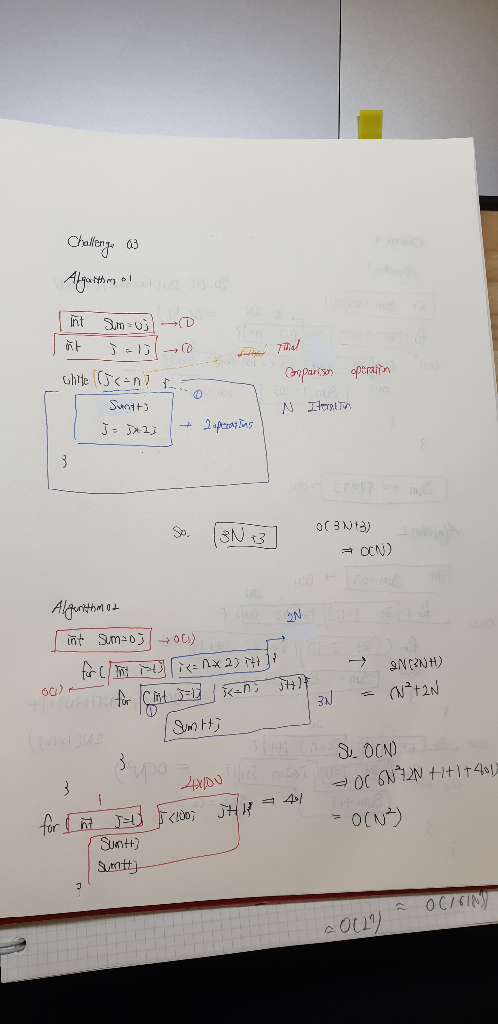 Challenge 03
Algorithm 01
int Sum=0; → ①
int j = 1; → ①
while (j<=n) {
①
Final
Comparison operation
N Iteration
Sum++;
j = j*2;
→ 2 operations
}
So. 3N+3
O(3N+3)
⇒ O(N)
Algorithm 02
int Sum=0; → O(1)
2N
for( int i=1; i<=n*2; i++ {
O(1)
for (int j=1; j<=n; j++){
①
3N
Sum++;
→ 2N(3N+1)
= 6N²+2N
}
}
So O(N)
⇒ O( 6N²+2N+1+1+401)
= O(N²)
1
4x100
for( int j=1; j<100; j++){ ⇒ 401
Sum++;
Sum++;
}